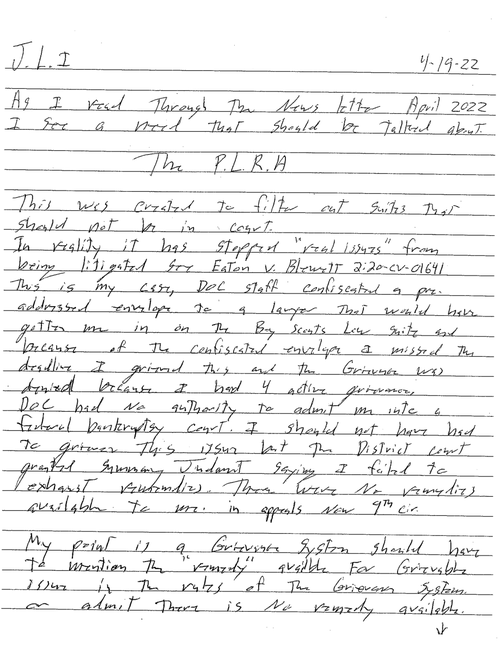 J.L.I 4-19-22
As I read Through The News letter April 2022
I see a need that should be talked about.
The P.L.R.A
This was created to filter out suites that
should not be in court.
In reality it has stopped "real issues" from
being litigated see Eaton v. Blewett 2:20-cv-01641
This is my case, DOC staff confiscated a pre-
addressed envelope to a lawyer that would have
gotten me in on the Boy Scouts Law Suite and
because of the confiscated envelope I missed the
deadline I grieved this and the Grievance was
denied because I had 4 active grievances,
DOC had No authority to admit me into a
federal bankruptsy court. I should not have had
to grieve This issue but The District court
granted Summary Judment saying I failed to
exhaust remedies. There were No remedies
available to me. in appeals Now 9th cir.
My point is a Grievance System should have
to mention the "remedy" availble For Grievable
issues in The rules of The Grievance System.
or admit There is No remedy available.
↓